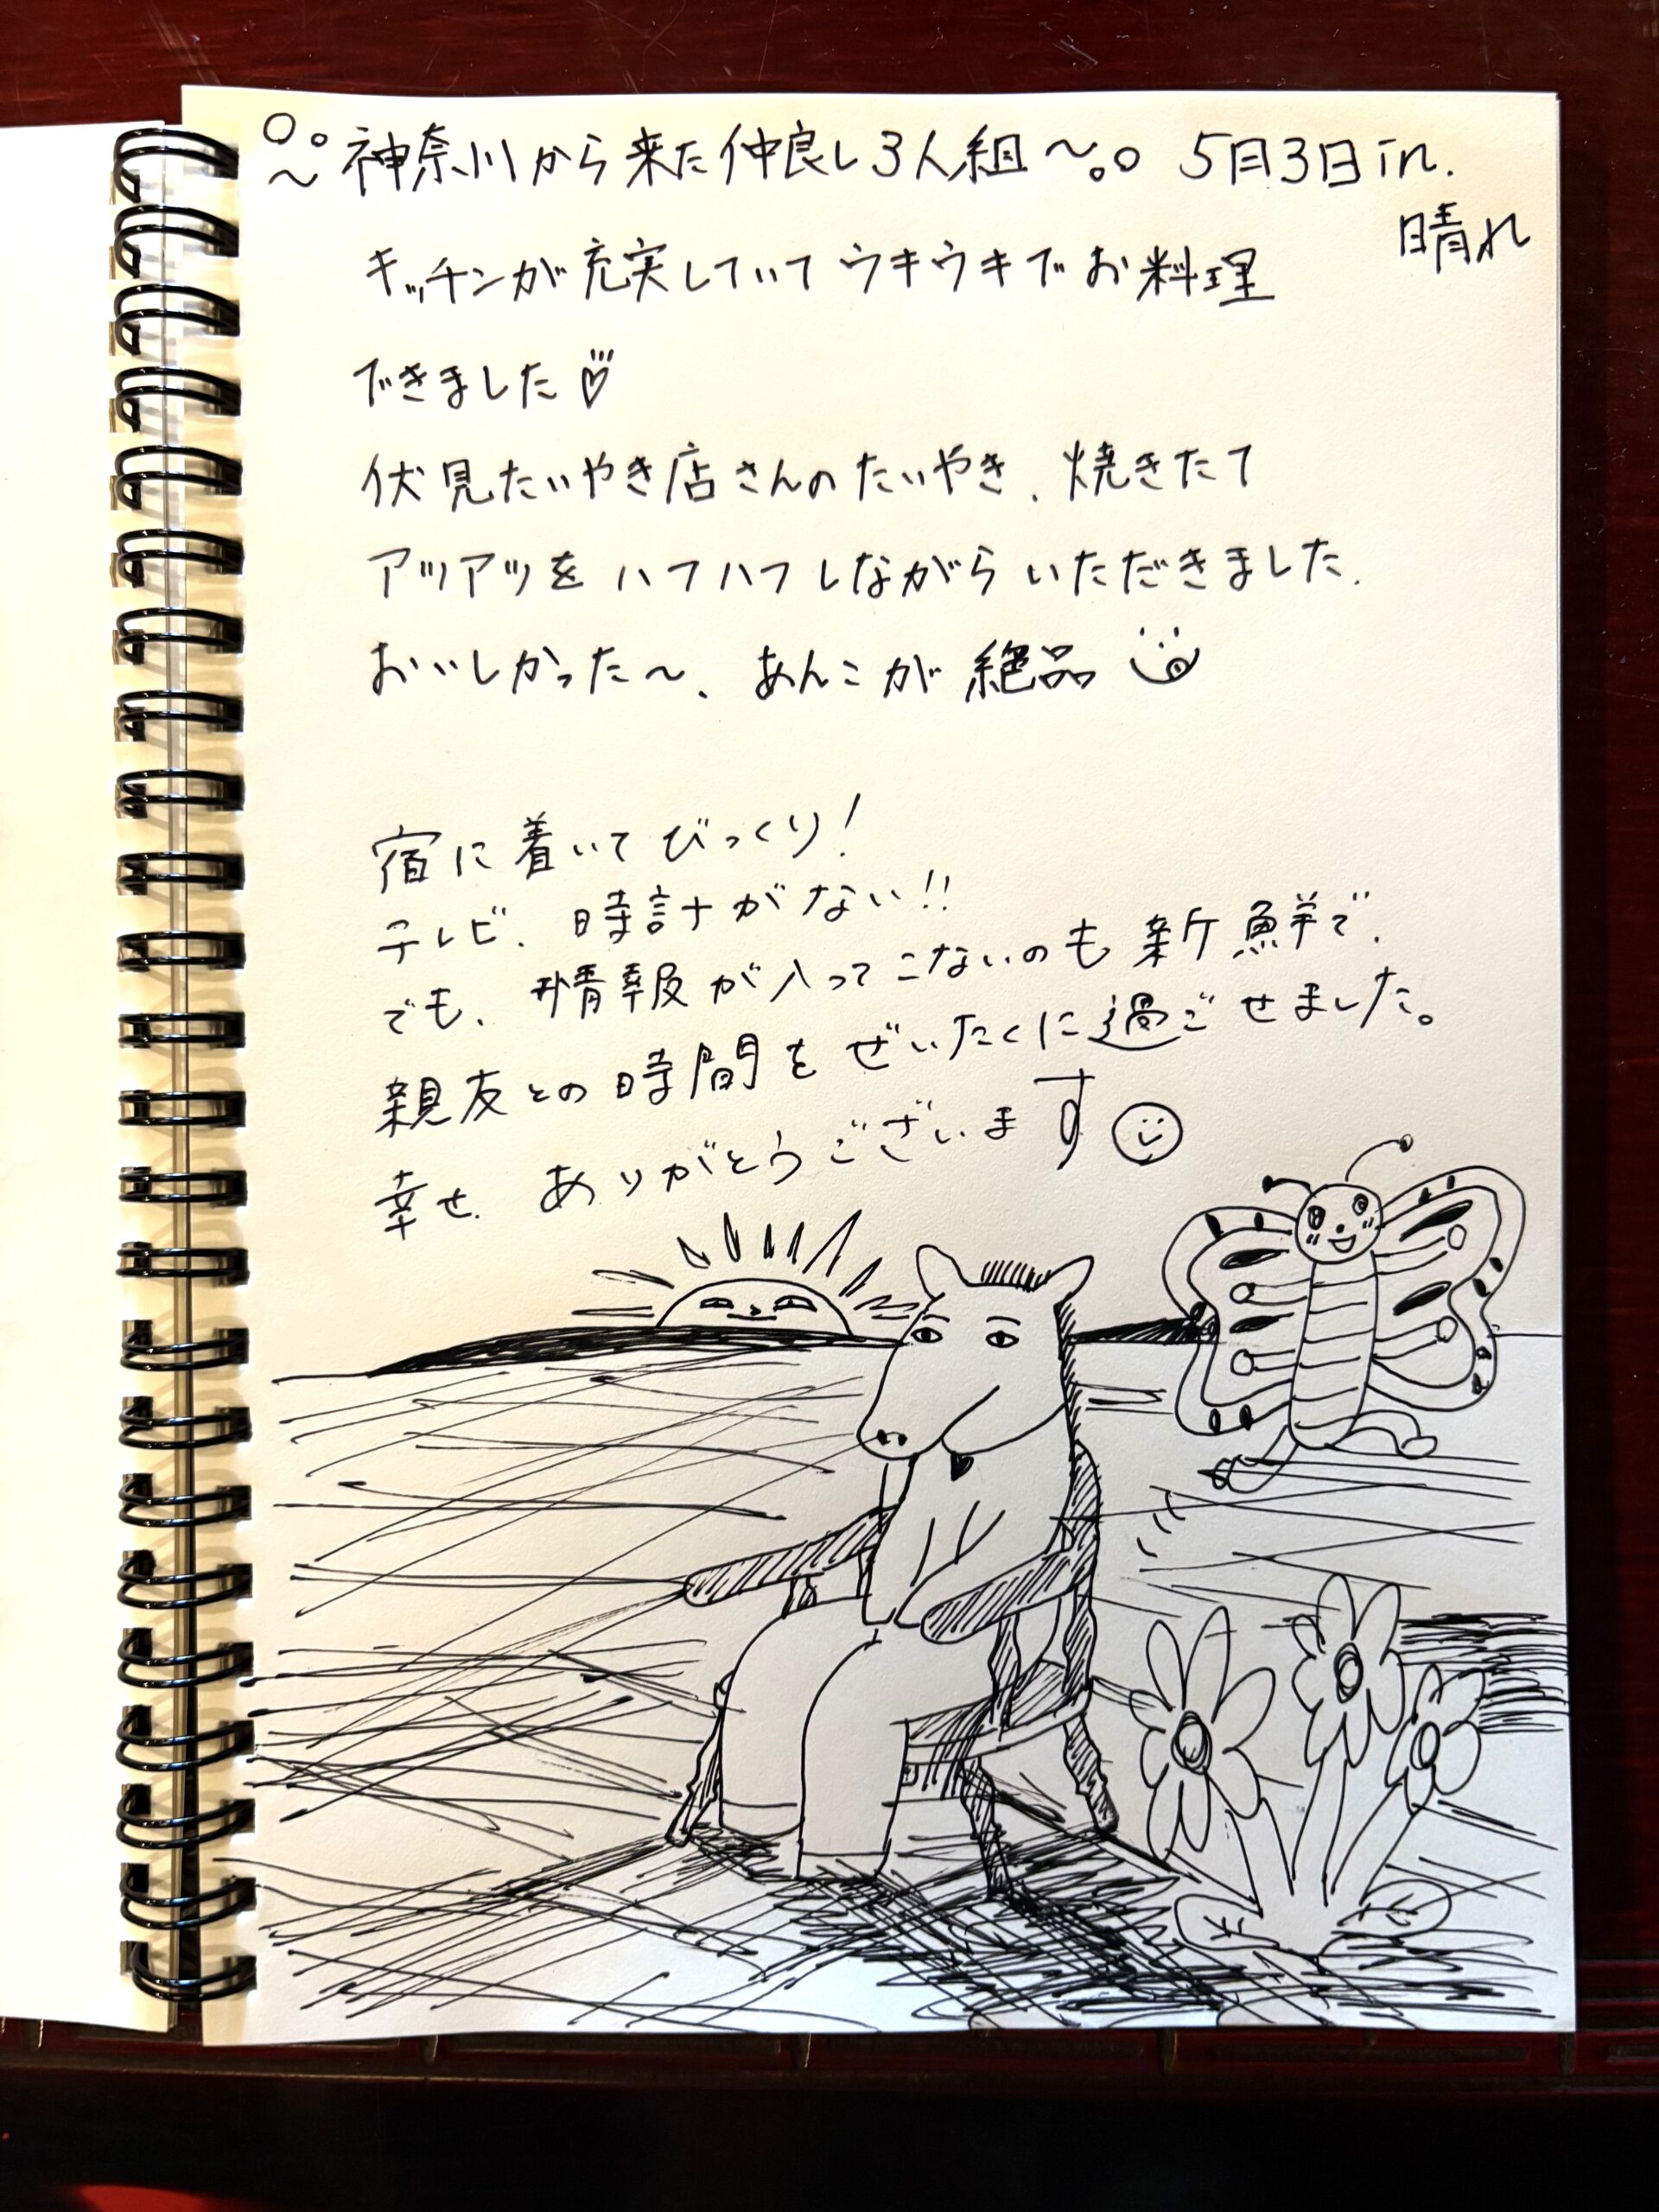 〜神奈川から来た仲良し3人組〜 5月3日in.
晴れ
キッチンが充実していてウキウキでお料理
できました♡
伏見たいやき店さんのたいやき、焼きたて
アツアツをハフハフしながらいただきました.
おいしかった〜、あんこが絶品
宿に着いてびっくり!
テレビ、時計がない!!
でも、情報が入ってこないのも新鮮で、
親友との時間をぜいたくに過ごせました。
幸せ. ありがとうございます